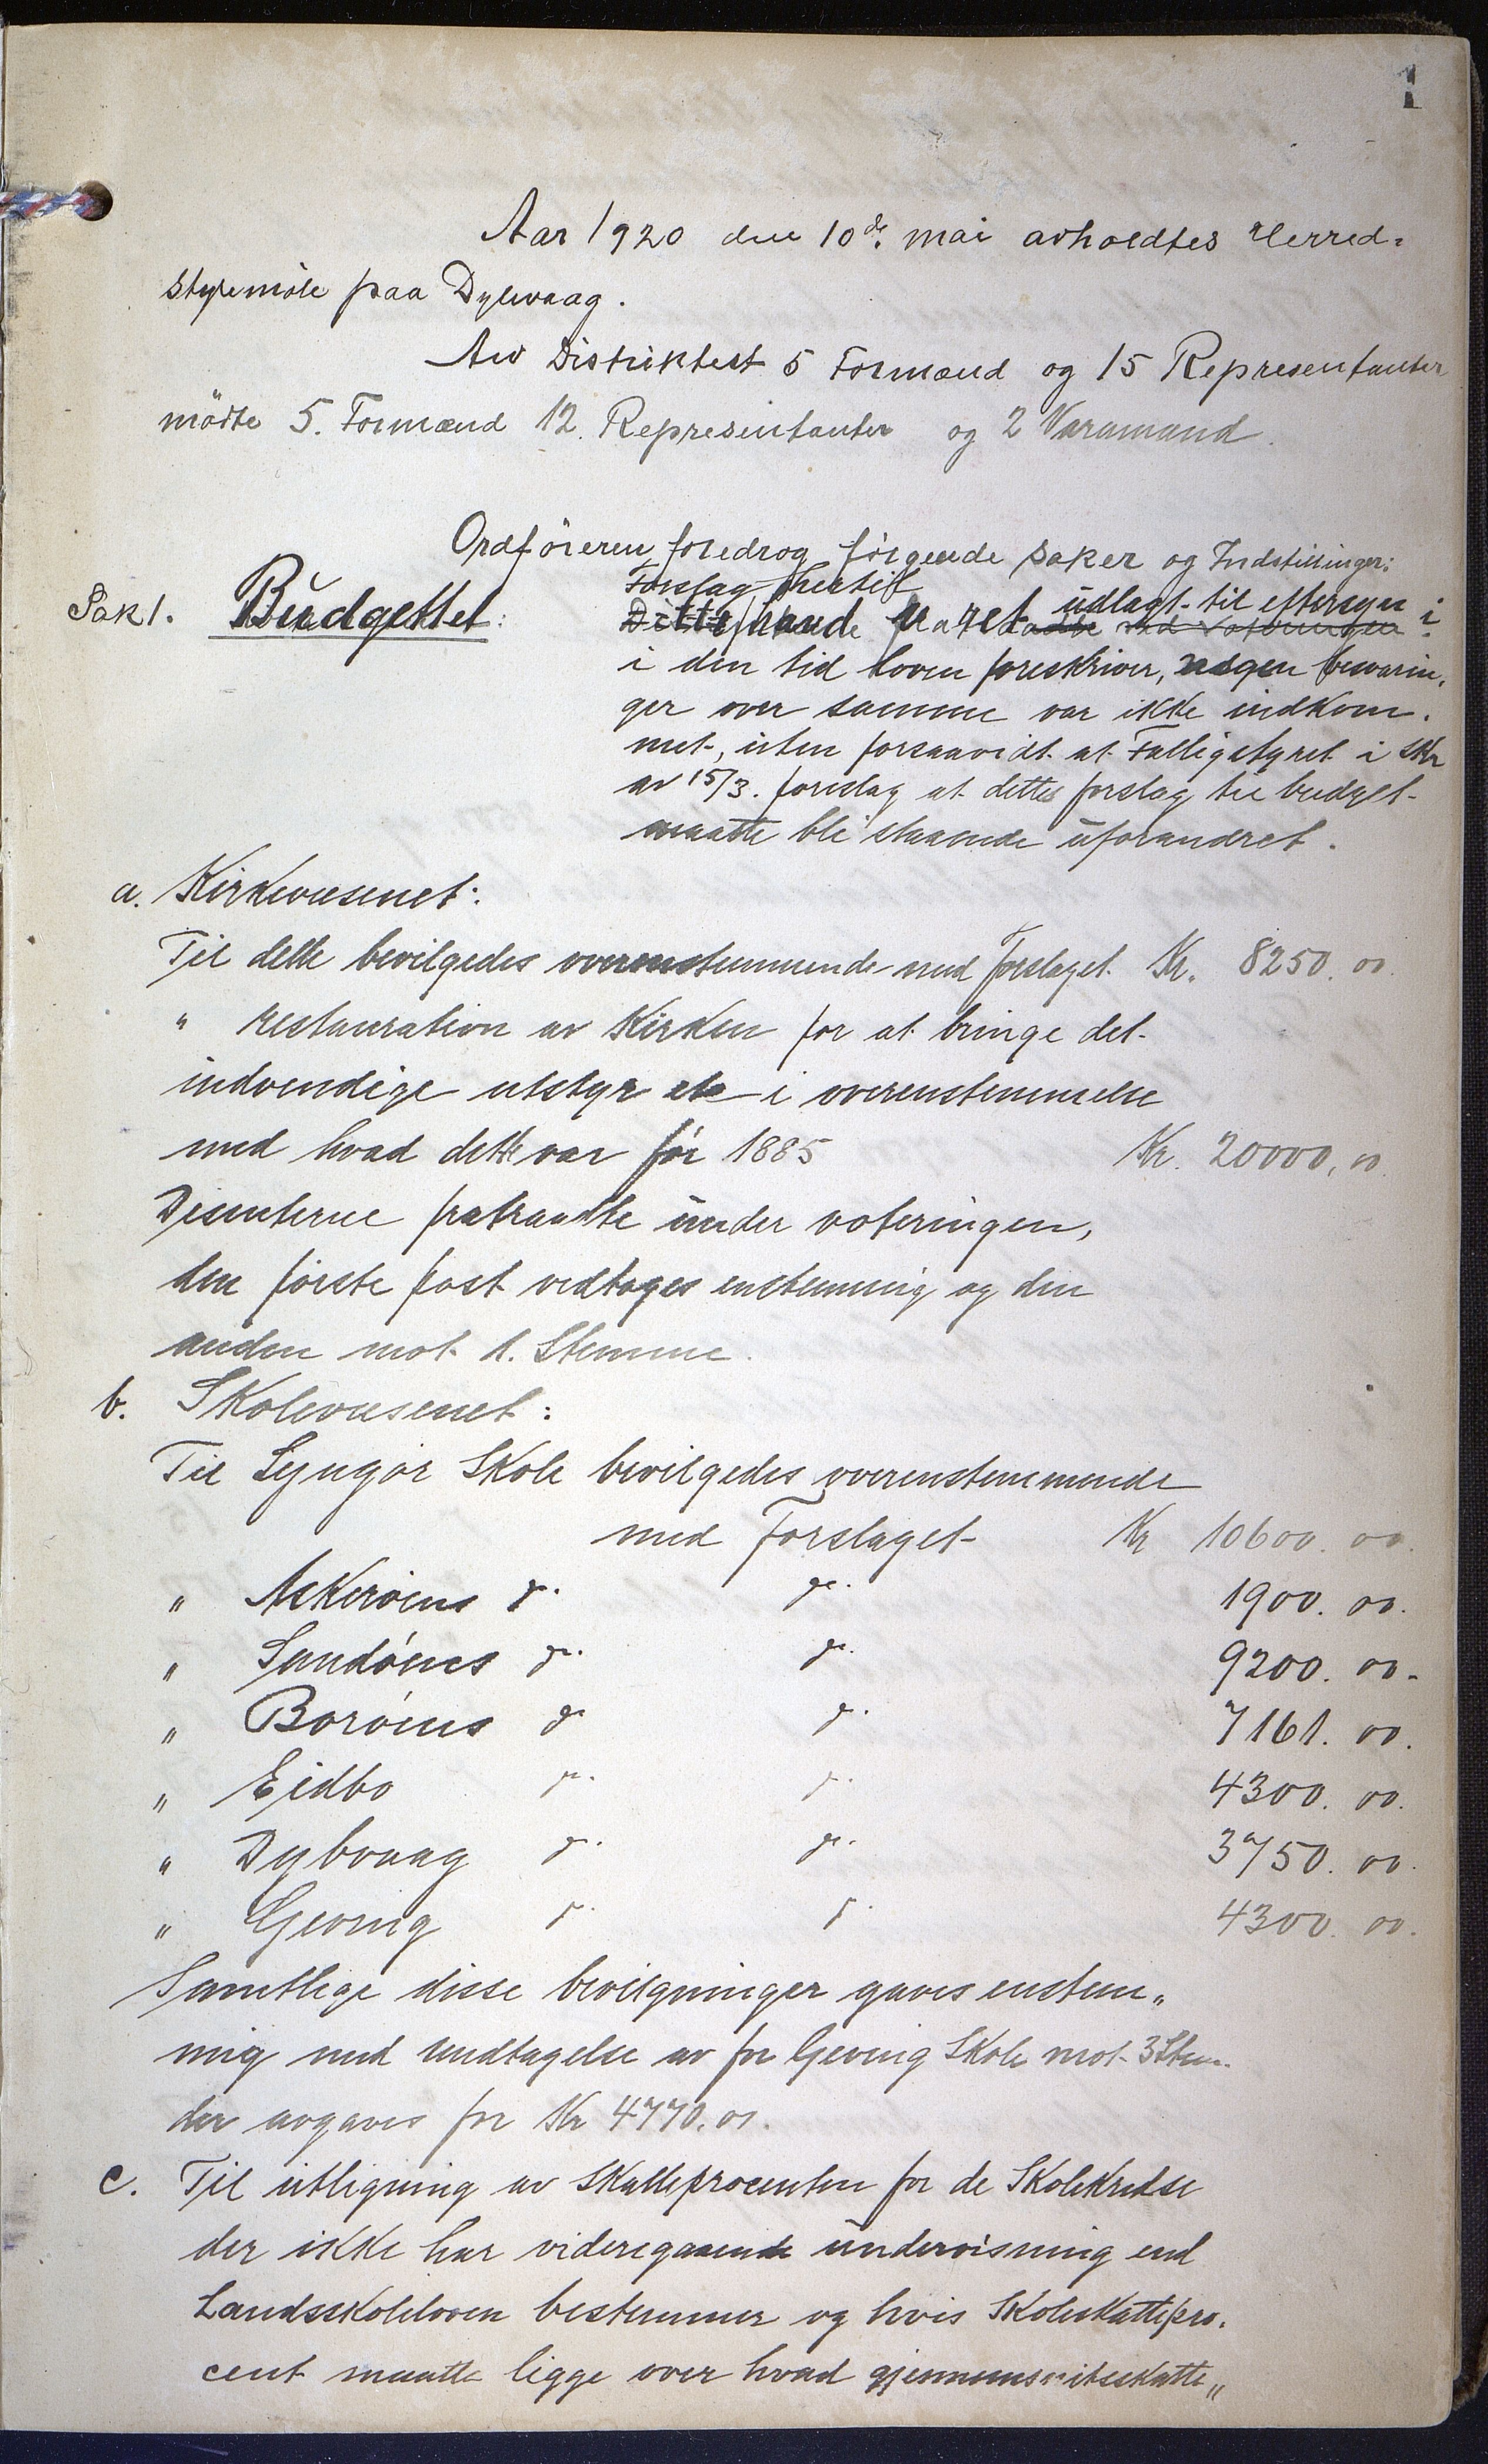 1
Aar 1920 den 10de mai avholdtes Herred-
styremøte paa Dybvaag.
Av Distriktest 5 Formænd og 15 Representanter
mødte 5. Formænd 12. Representanter og 2 Varamænd.
Ordføreren foredrog følgende Saker og Indstillinger:
Sak 1. Budgettet: Forslag hertil havde været udlagt til eftersyn i
i den tid loven foreskriver, nogen bevarin-
ger over samme var ikke indkom-
met, uten forsaavidt at Fattigstyret i Skr
av 15/3. foreslag at dettes forslag til budget
maatte bli staaende uforandret.
a. Kirkevæsenet:
Til dette bevilgedes overenstemmende med Forslaget Kr. 8250.00.
" restauration av Kirken for at bringe det
indvendige utstyr etc i overenstemmelse
med hvad dette var før 1885 Kr. 20000,00.
Disenterne fratraadte under voteringen,
den første post vedtoges enstemmig og den
anden mot 1. Stemme.
b. Skolevæsenet:
Til Lyngør Skole bevilgedes overenstemmende
med Forslaget Kr 10600.00.
" Askerøens do. do. 1900.00.
" Sandøens do. do. 9200.00.
" Borøens do do. 7161.00.
" Eidbo do. do. 4300.00.
" Dybvaag do. do. 3750.00.
" Gjeving do. do. 4300.00.
Samtlige disse bevilgninger gaves enstem-
mig med undtagelse av for Gjeving Skole mot 3 Stem.
der avgaves for Kr 4770.00.
c. Til utligning av Skatteprocenten for de Skolekredse
der ikke har videregaaende undervisning end
Landsskoleloven bestemmer og hvis Skoleskattepro-
cent maatte ligge over hvad gjennemsnitsskatte-